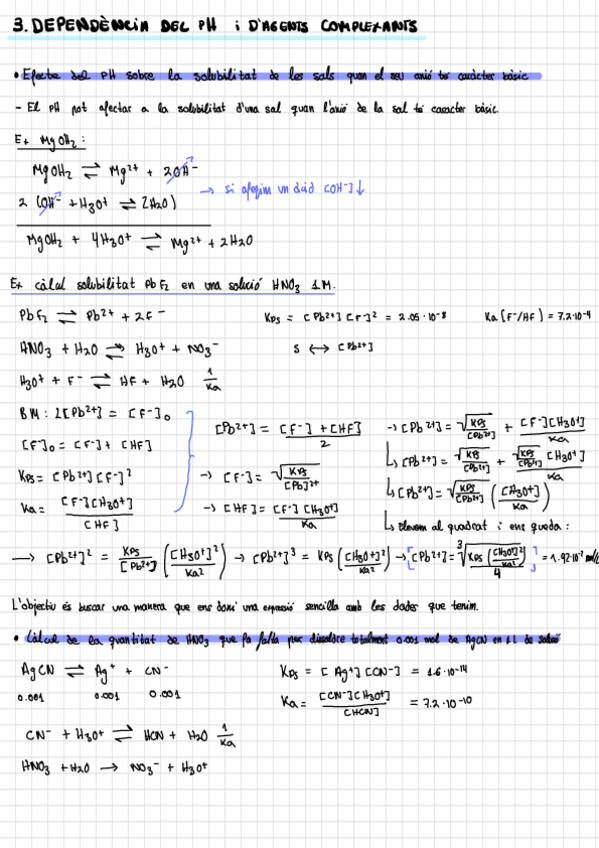 3. DEPENDÈNCIA DEL PH i D'AGENTS COMPLEXANTS
• Efecte del PH sobre la solubilitat de les sals quan el seu anió té caràcter bàsic
- El PH pot afectar a la solubilitat d'una sal quan l'anió de la sal té caracter bàsic.
Ex MgOH2:
MgOH2 ⇌ Mg2+ + 2OH-
2 (OH- + H3O+ ⇌ 2H2O) → si afegim un àcid [OH-]↓
MgOH2 + 4H3O+ ⇌ Mg2+ + 2H2O
Ex càlcul solubilitat PbF2 en una solució HNO3 1M.
PbF2 ⇌ Pb2+ + 2F- Kps = [Pb2+][F-]2 = 2.05·10-8 Ka (F-/HF) = 7.2·10-4
HNO3 + H2O ⇌ H3O+ + NO3- S ↔ [Pb2+]
H3O+ + F- ⇌ HF + H2O 1/Ka
BM: 2[Pb2+] = [F-]0
[F-]0 = [F-] + [HF]
Kps = [Pb2+][F-]2
Ka = [F-][H3O+]/[HF]
[Pb2+] = [F-] + [HF]/2
→ [F-] = √Kps/[Pb]2+
→ [HF] = [F-][H3O+]/Ka
→ [Pb2+] = √Kps/[Pb2+] + [F-][H3O+]/Ka
↳ [Pb2+] = √Kps/[Pb2+] + √Kps/[Pb2+] [H3O+]/Ka
↳ [Pb2+] = √Kps/[Pb2+] ([H3O+]/Ka)
↳ Elevem al quadrat i ens queda:
→ [Pb2+]2 = Kps/[Pb2+] ([H3O+]2/Ka2) → [Pb2+]3 = Kps ([H3O+]2/Ka2) → [Pb2+] = 3√Kps ([H3O+]2/Ka2)/4 = 1.92·10-1
L'objectiu és buscar una manera que ens doni una expressió sencilla amb les dades que tenim.
• Càlcul de la quantitat de HNO3 que fa falta per dissoldre totalment 0.001 mol de AgCN en 1L de solució
AgCN ⇌ Ag+ + CN- Kps = [Ag+][CN-] = 1.6·10-14
0.001 0.001 0.001 Ka = [CN-][H3O+]/[HCN] = 7.2·10-10
CN- + H3O+ ⇌ HCN + H2O 1/Ka
HNO3 + H2O → NO3- + H3O+